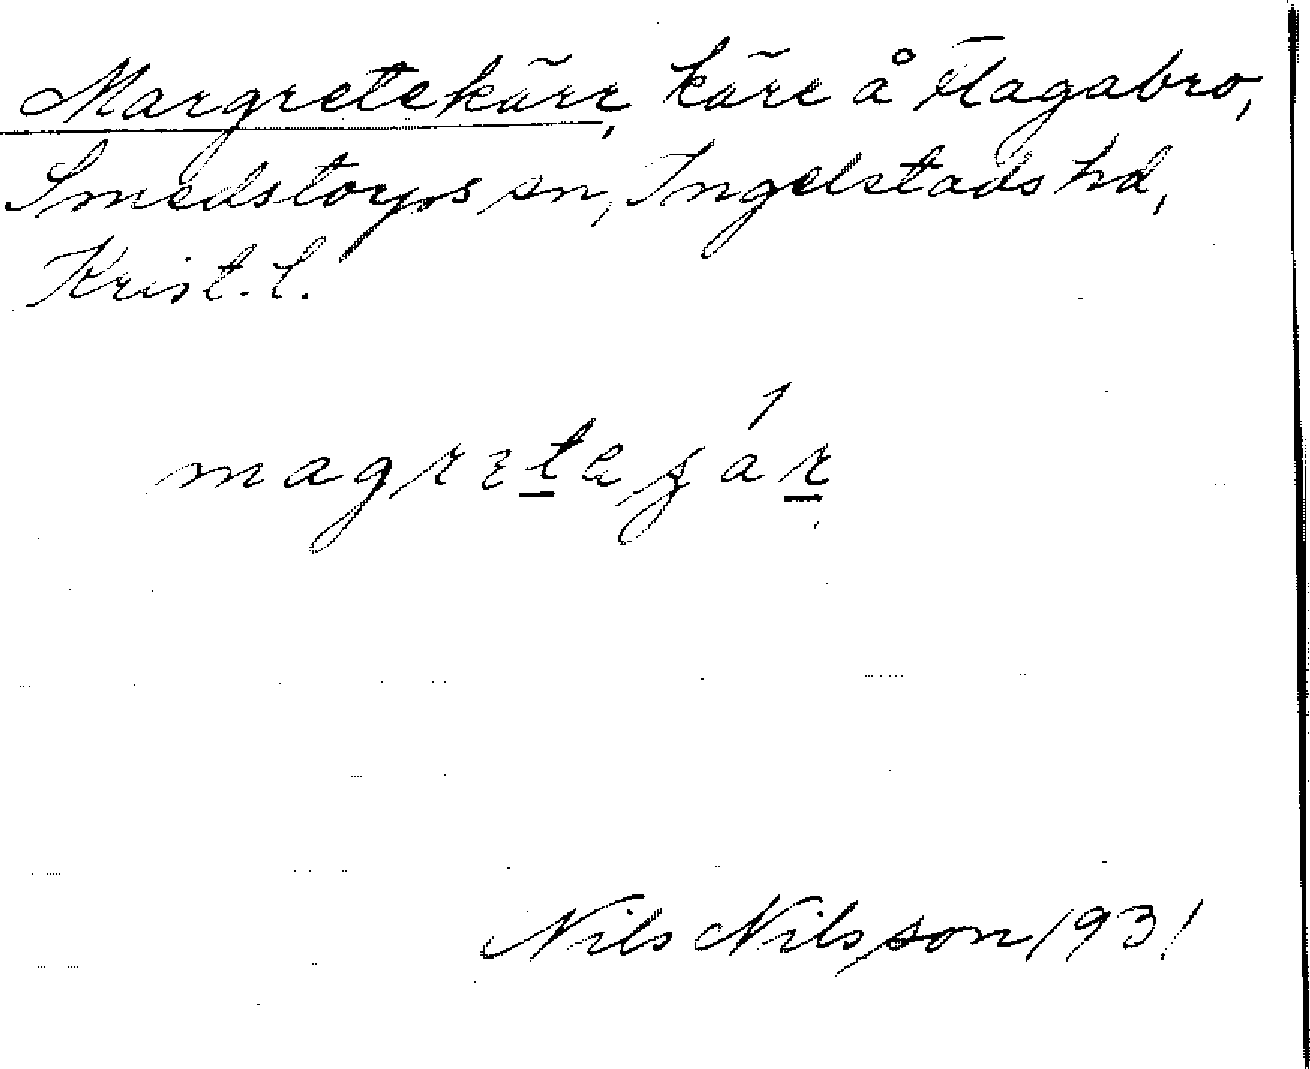 Margretekärr, kärr å Flagabro,
Smedstorps sn, Ingelstads hd,
Krist. l.
Nils Nilsson 1931